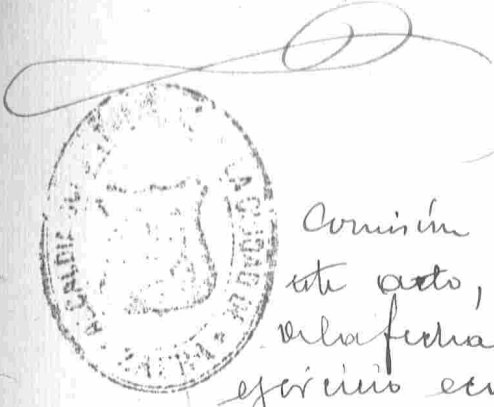 ALCALDIA DE LA CIUDAD DE
Comisión
este acto,
de la fecha
ejercicio eco